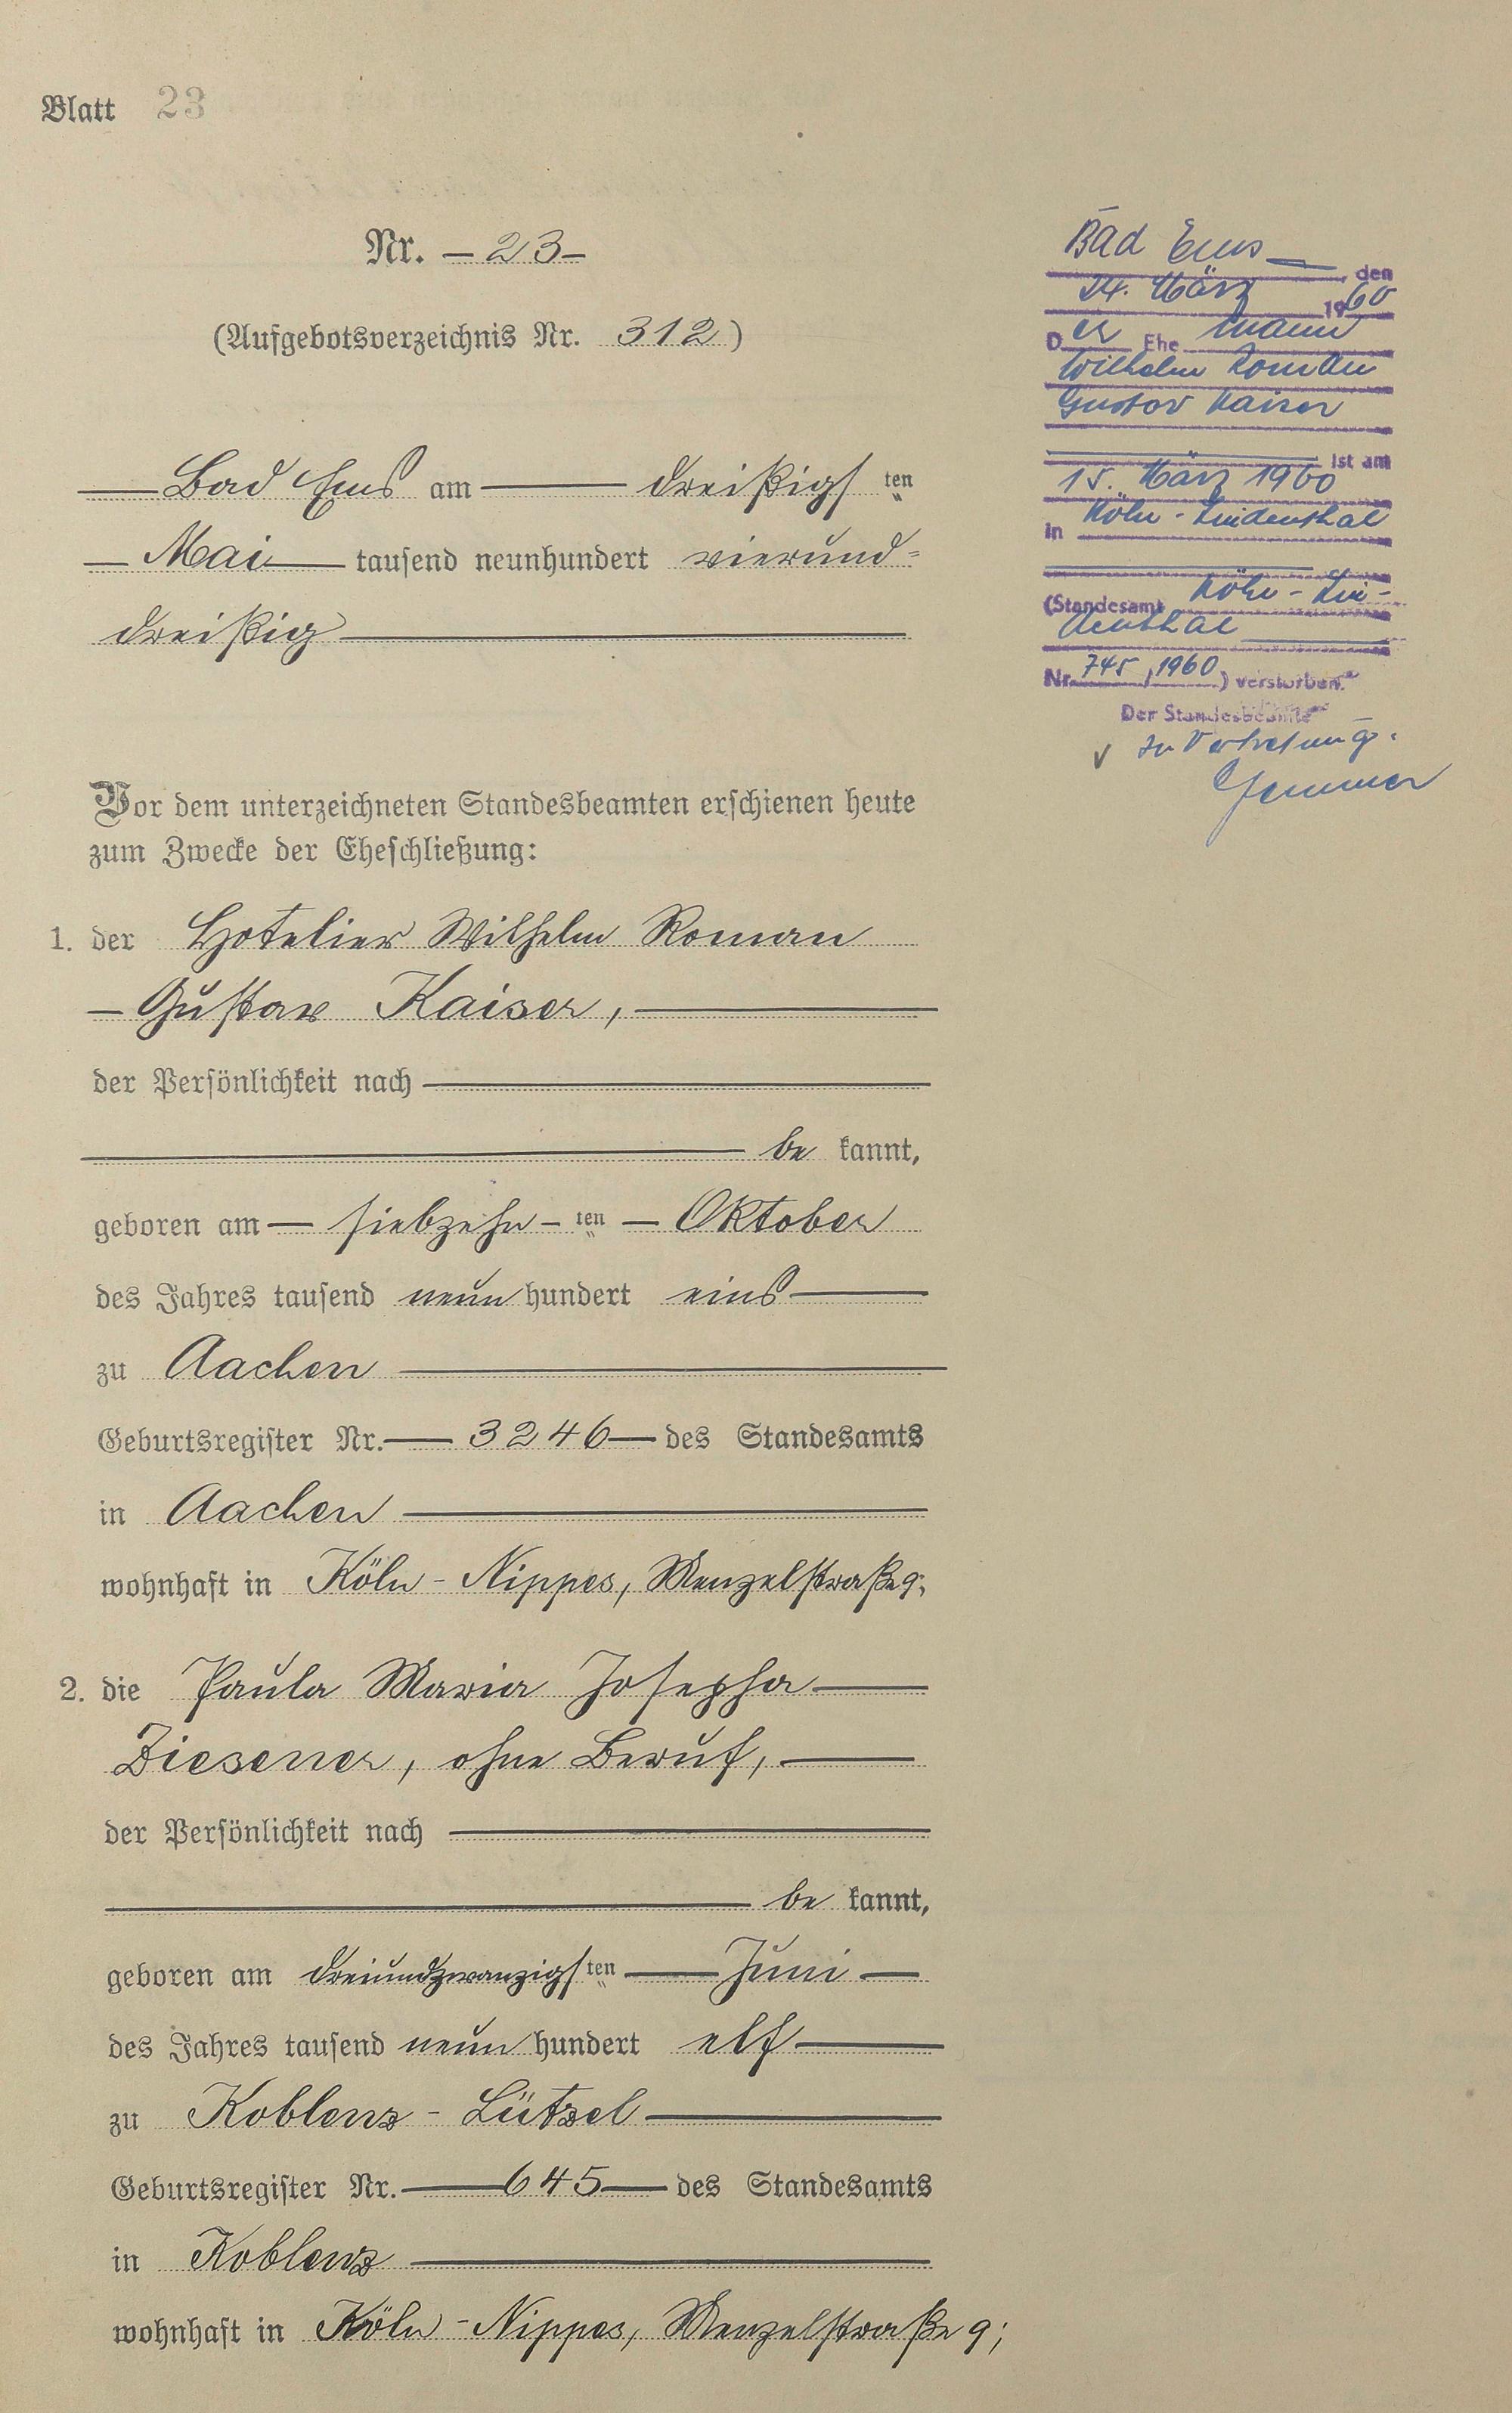 Blatt 23
Nr. — 23 —
(Aufgebotsverzeichnis Nr. 312)
— Bad Ems am — dreißigsten
— Mai — tausend neunhundert vierund=
dreißig —
Vor dem unterzeichneten Standesbeamten erschienen heute
zum Zwecke der Eheschließung:
1. der Hotelier Wilhelm Roman
— Gustav Kaiser, —
der Persönlichkeit nach —
— be kannt,
geboren am — siebzehn-ten — Oktober
des Jahres tausend neun hundert eins —
zu Aachen —
Geburtsregister Nr. — 3246 — des Standesamts
in Aachen —
wohnhaft in Köln-Nippes, Menzelstraße 9;
2. die Paula Maria Josepha —
Ziesener, ohne Beruf, —
der Persönlichkeit nach —
— be kannt,
geboren am dreiundzwanzigsten — Juni —
des Jahres tausend neun hundert elf —
zu Koblenz-Lützel —
Geburtsregister Nr. — 645 — des Standesamts
in Koblenz —
wohnhaft in Köln-Nippes, Menzelstraße 9;
Bad Ems —, den
März 1960
Der Ehe mann
Wilhelm Roman
Gustav Kaiser
ist am
15. März 1960
in Köln-Lindenthal
(Standesamt Köln-Lin-
denthal
Nr. 745, 1960) verstorben.
Der Standesbeamte
In Vertretung.